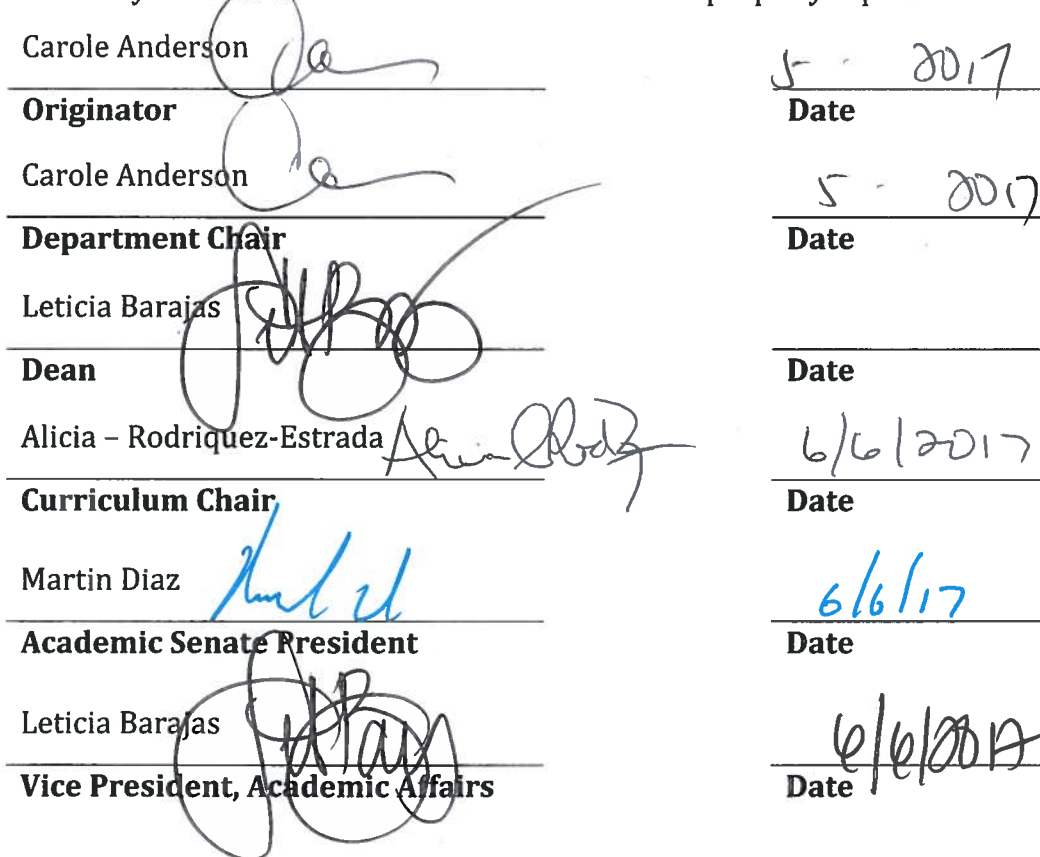 Carole Anderson 5 - 2017
Originator Date
Carole Anderson 5 - 2017
Department Chair Date
Leticia Barajas
Dean Date
Alicia – Rodriquez-Estrada 6/6/2017
Curriculum Chair Date
Martin Diaz 6/6/17
Academic Senate President Date
Leticia Barajas 6/6/2017
Vice President, Academic Affairs Date